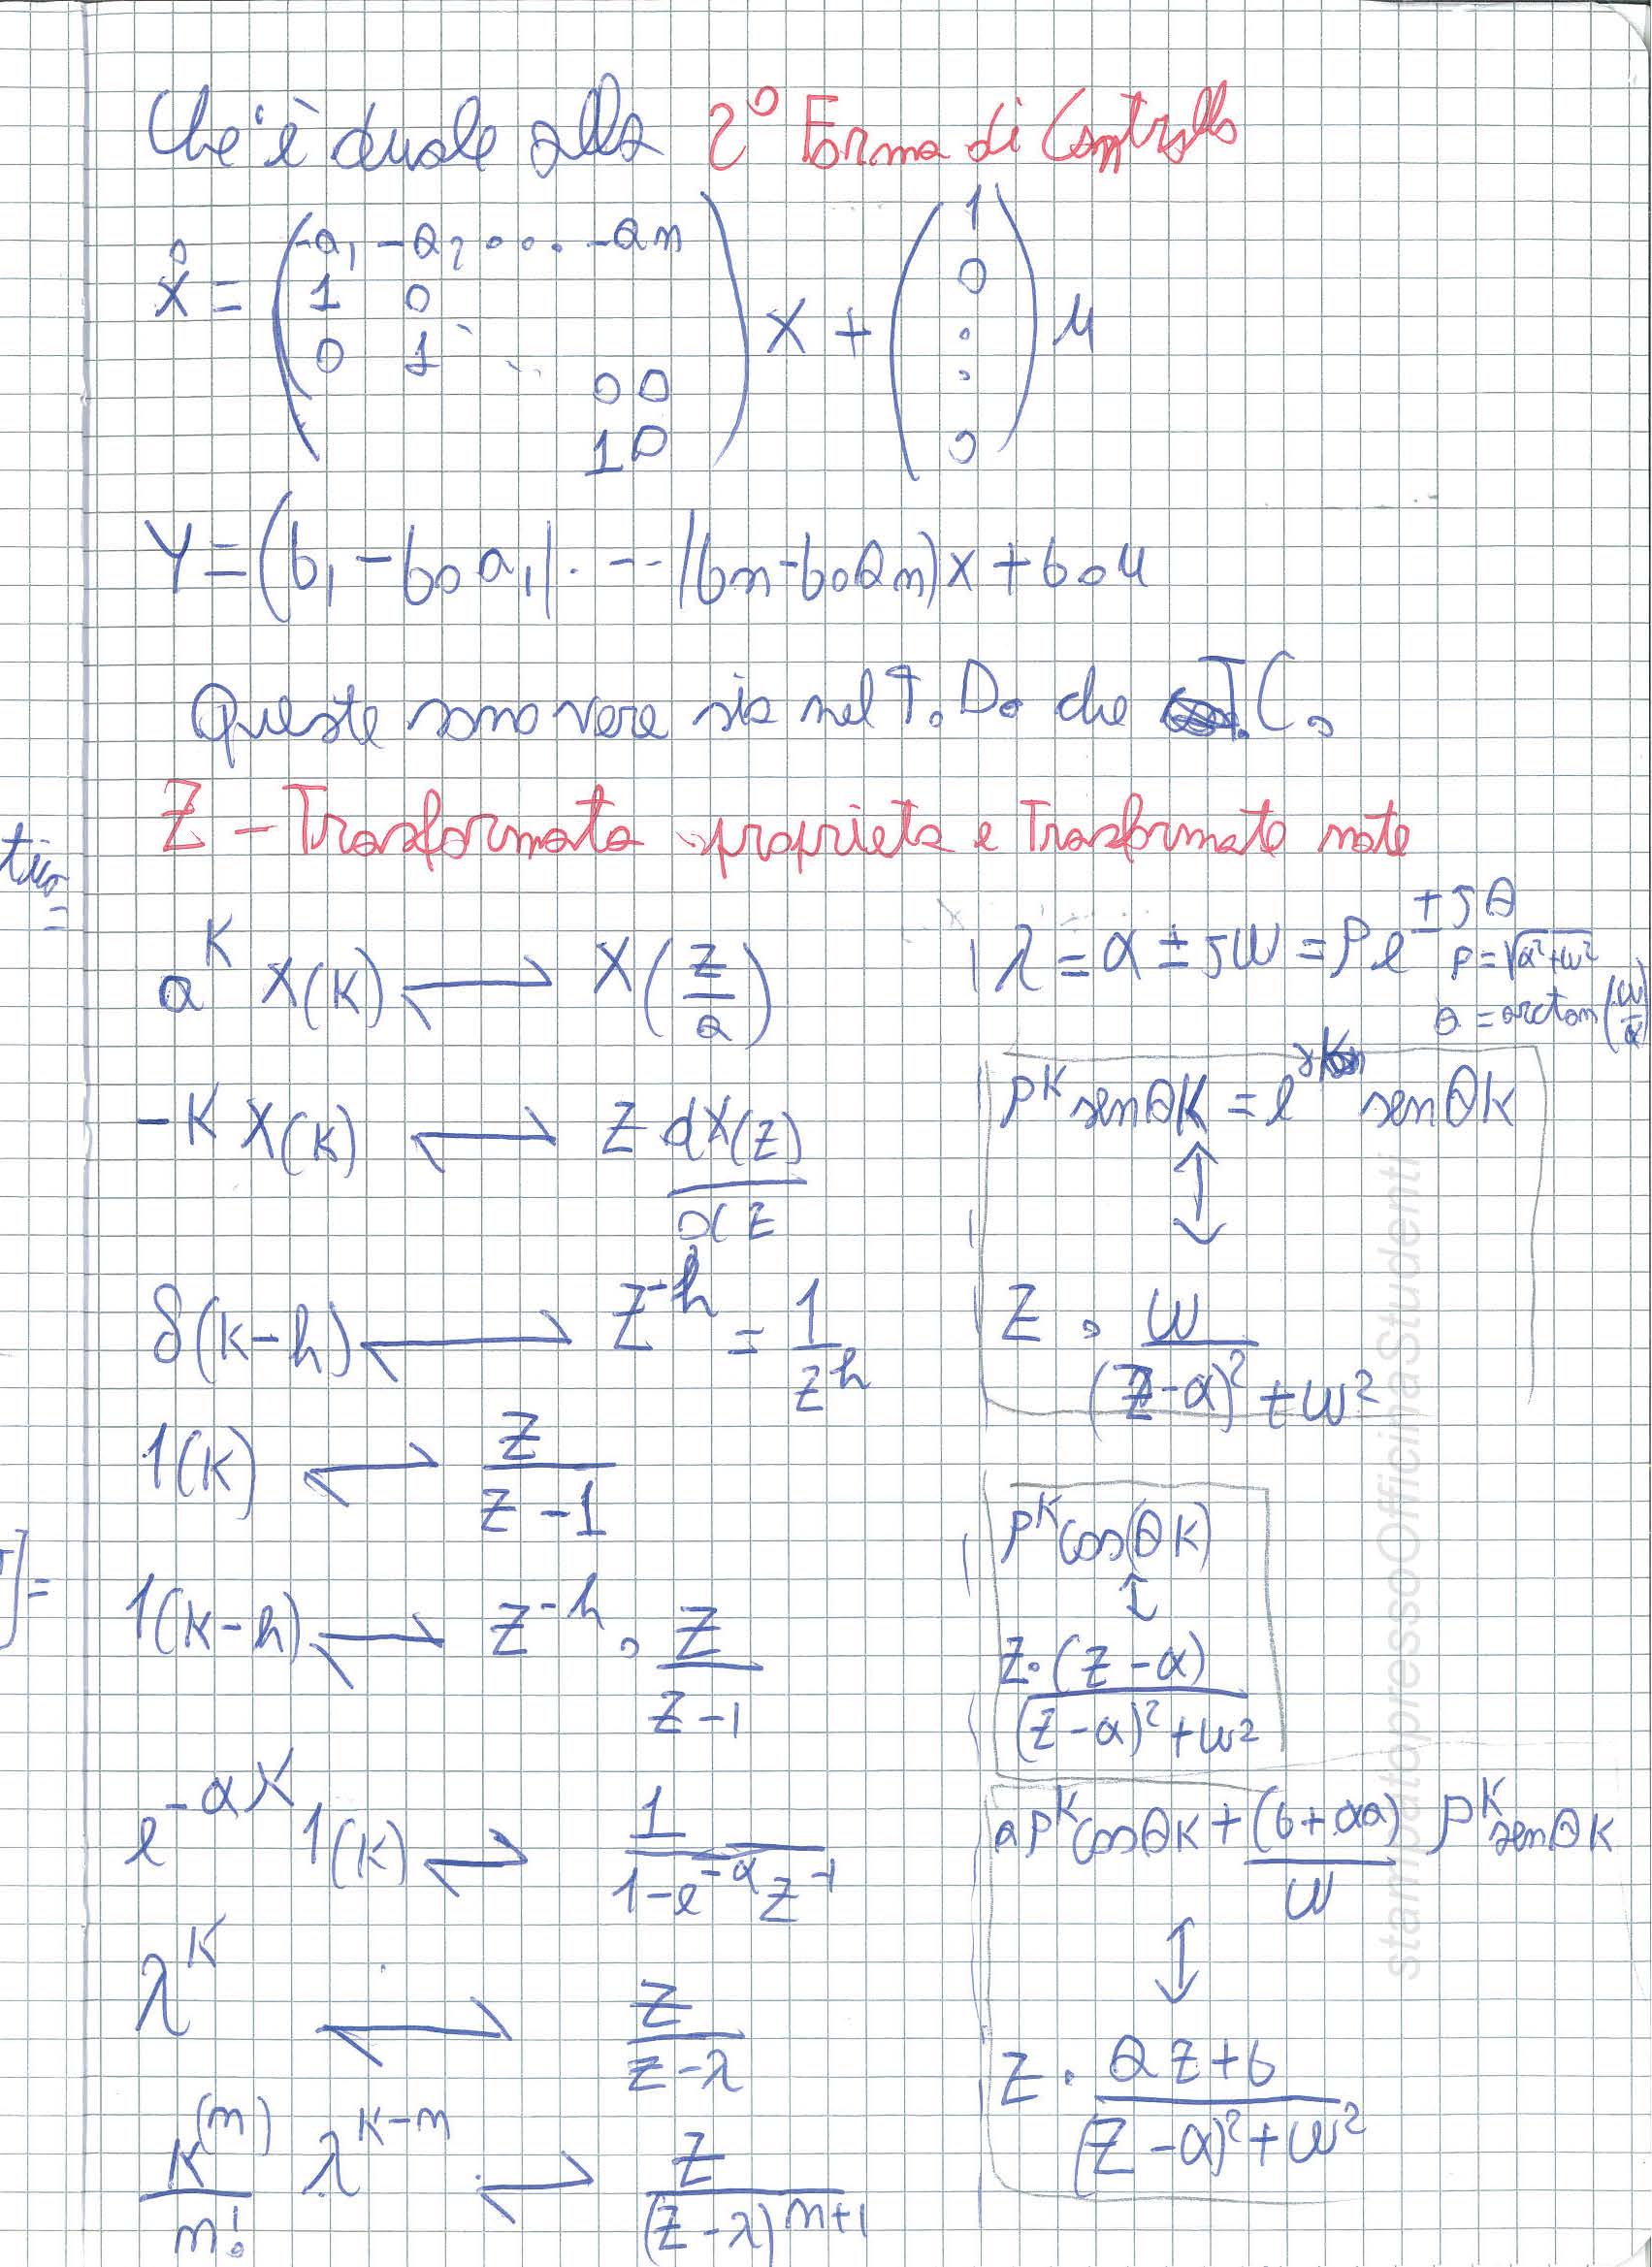 Che è duale alla 2° Forma di Controllo
ẋ = (-a₁ -a₂ .... -an
1 0
0 1 ⋱
0 0
1 0) x + (1
0
.
.
0) u
Y = (b₁ - b₀a₁ | . -- | bn - b₀an) x + b₀u
Queste sono vere sia nel T.D. che T.C.
Z - Trasformata proprietà e Trasformate note
a^K X(K) ⇌ X(z/a)
-K X(K) ⇌ z dX(z)/dz
δ(K-h) ⇌ z^-h = 1/z^h
1(K) ⇌ z/(z-1)
1(K-h) ⇌ z^-h · z/(z-1)
e^-αK 1(K) ⇌ 1/(1-e^-α z^-1)
λ^K ⇌ z/(z-λ)
K^(m)/m! λ^K-m ⇌ z/(z-λ)^m+1
λ = α ± jω = ρe^±jθ
ρ = √α²+ω²
θ = arctan(ω/α)
ρ^K senθK = e senθK
↕
z · ω/((z-α)²+ω²)
ρ^K cos(θK)
↕
z·(z-α)/((z-α)²+ω²)
aρ^K cosθK + (b+αa)/ω ρ^K senθK
↕
z · (az+b)/((z-α)²+ω²)
tivo
=
]=
stampatopressoOfficinaStudenti